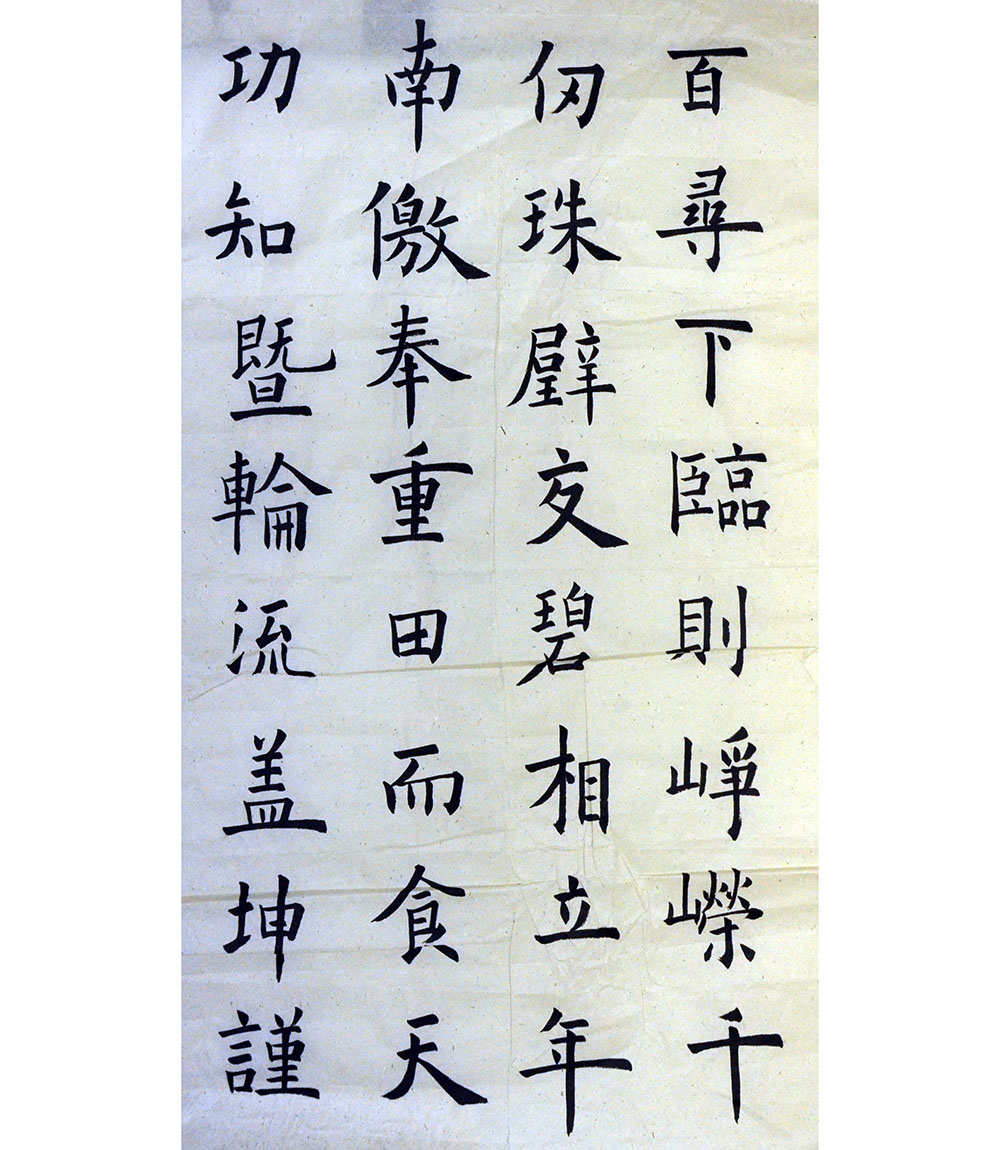 百尋下臨則崢嶸千
仞珠璧交碧相立年
南儌奉重田而食天
功知暨輪流盖坤謹